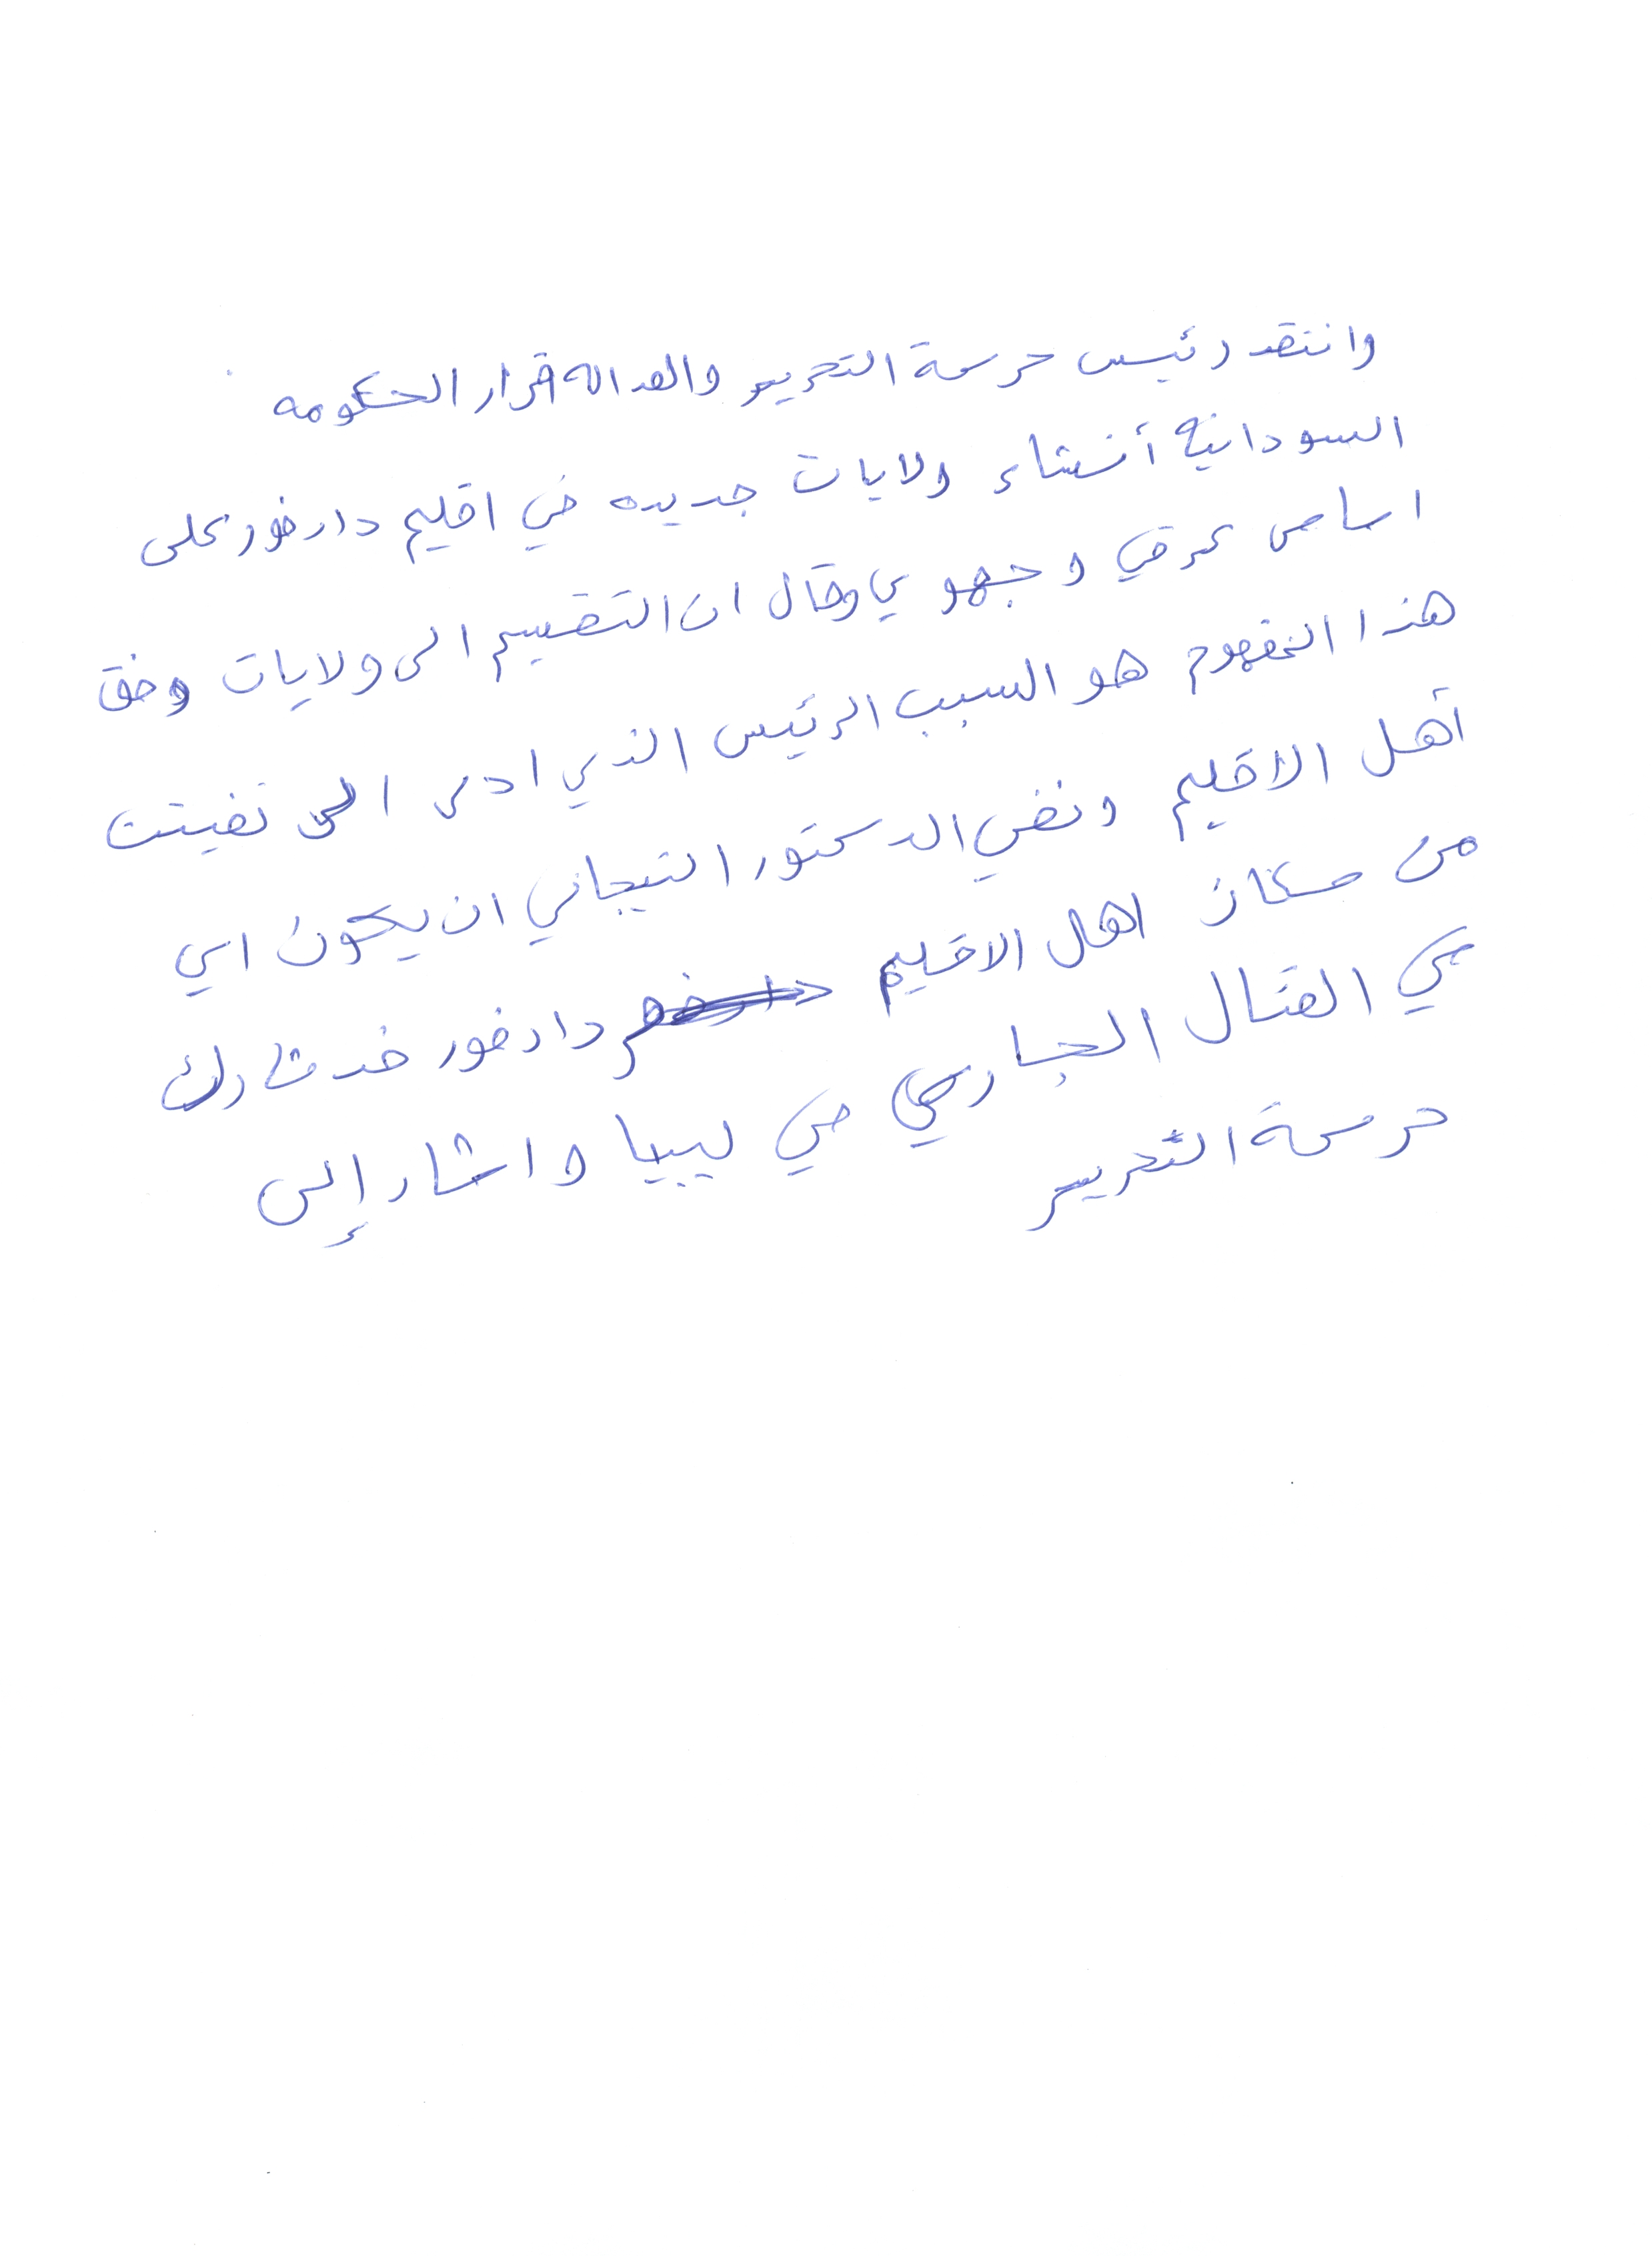 وانتقد رئيس حركة التحرير والعداله قرار الحكومه
السودانية أنشاء ولايات جديده في اقليم دارفور على
اساس عرقي وجهوي وقال ان التقسيم الى ولايات وفق
هذا المفهوم هو السبب الرئيس الذي ادى الى تفيتت
أهل الاقليم ونفي الدكتور التيجاني ان يكون اي
من سكان اهل الاقليم دارفور قد شارك
في القتال الجاري في ليبيا واشار إلى
حركة التحرير